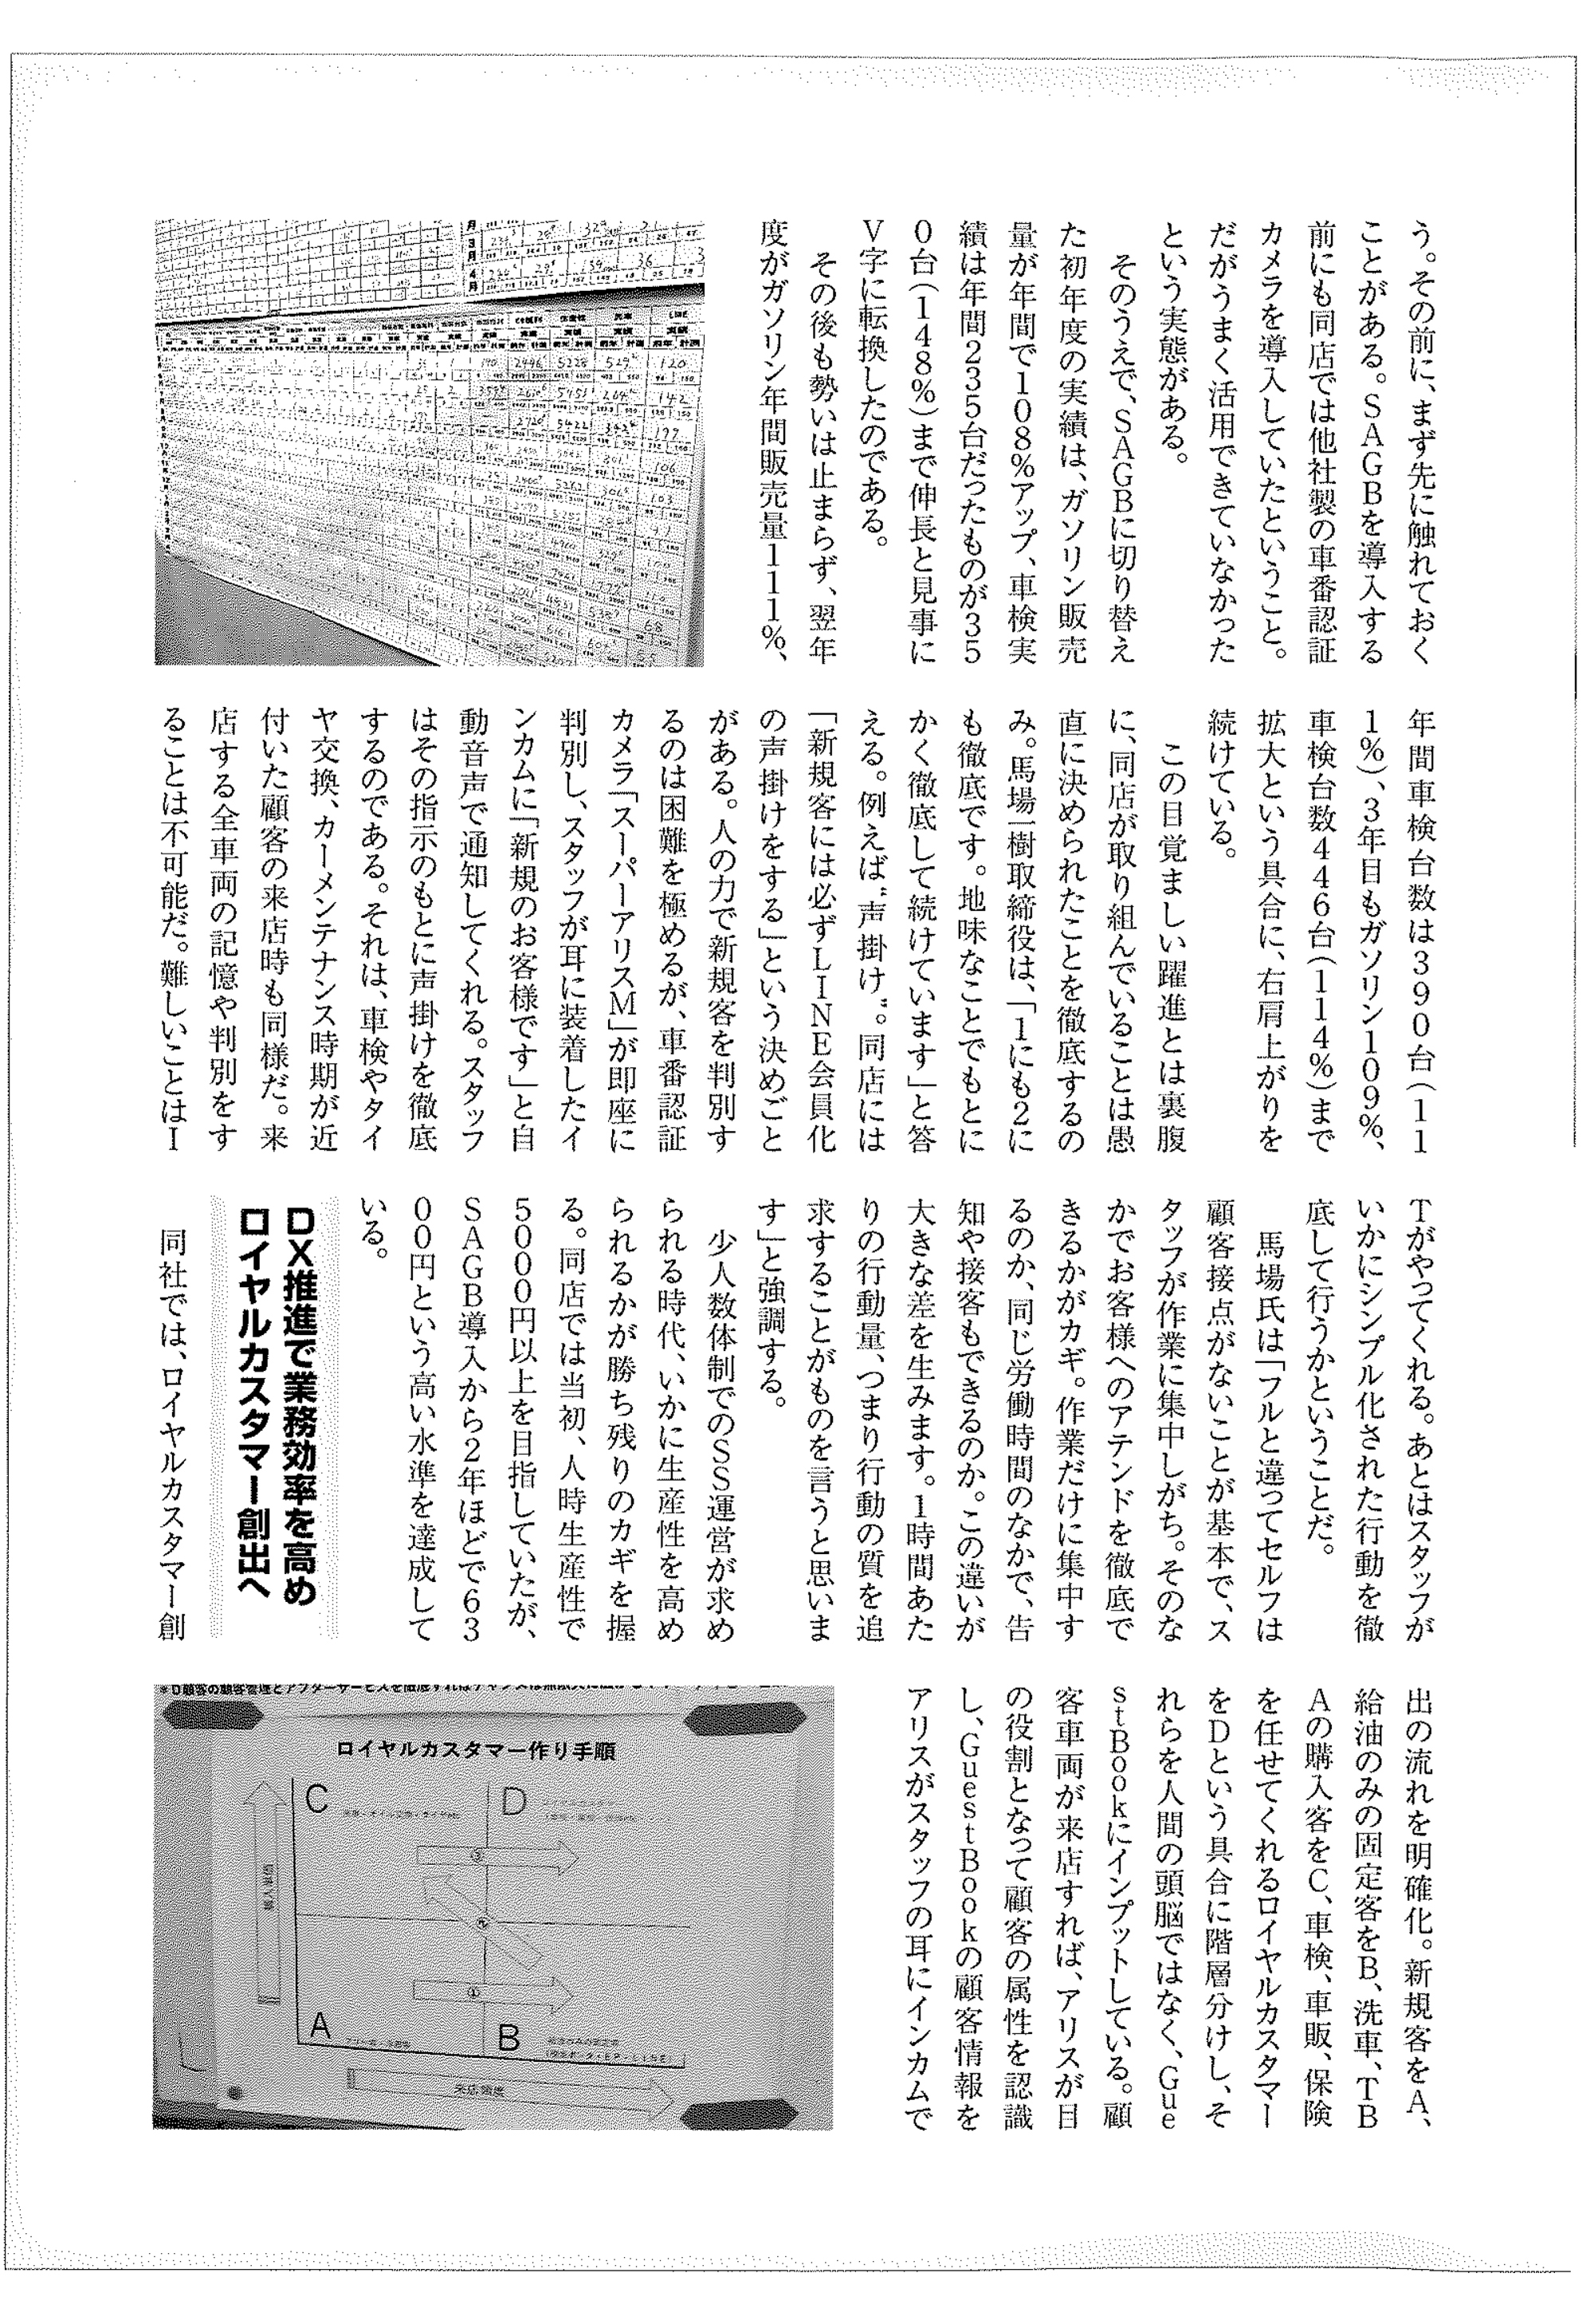 う。その前に、まず先に触れておく
ことがある。SAGBを導入する
前にも同店では他社製の車番認証
カメラを導入していたということ。
だがうまく活用できていなかった
という実態がある。
そのうえで、SAGBに切り替え
た初年度の実績は、ガソリン販売
量が年間で108%アップ、車検実
績は年間235台だったものが35
0台(148%)まで伸長と見事に
V字に転換したのである。
その後も勢いは止まらず、翌年
度がガソリン年間販売量111%、
年間車検台数は390台(11
1%)、3年目もガソリン109%、
車検台数446台(114%)まで
拡大という具合に、右肩上がりを
続けている。
この目覚ましい躍進とは裏腹
に、同店が取り組んでいることは愚
直に決められたことを徹底するの
み。馬場一樹取締役は、「1にも2に
も徹底です。地味なことでもとに
かく徹底して続けています」と答
える。例えば“声掛け”。同店には
「新規客には必ずLINE会員化
の声掛けをする」という決めごと
がある。人の力で新規客を判別す
るのは困難を極めるが、車番認証
カメラ「スーパーアリスM」が即座に
判別し、スタッフが耳に装着したイ
ンカムに「新規のお客様です」と自
動音声で通知してくれる。スタッフ
はその指示のもとに声掛けを徹底
するのである。それは、車検やタイ
ヤ交換、カーメンテナンス時期が近
付いた顧客の来店時も同様だ。来
店する全車両の記憶や判別をす
ることは不可能だ。難しいことはI
Tがやってくれる。あとはスタッフが
いかにシンプル化された行動を徹
底して行うかということだ。
馬場氏は「フルと違ってセルフは
顧客接点がないことが基本で、ス
タッフが作業に集中しがち。そのな
かでお客様へのアテンドを徹底で
きるかがカギ。作業だけに集中す
るのか、同じ労働時間のなかで、告
知や接客もできるのか。この違いが
大きな差を生みます。1時間あた
りの行動量、つまり行動の質を追
求することがものを言うと思いま
す」と強調する。
少人数体制でのSS運営が求め
られる時代、いかに生産性を高め
られるかが勝ち残りのカギを握
る。同店では当初、人時生産性で
5000円以上を目指していたが、
SAGB導入から2年ほどで63
00円という高い水準を達成して
いる。
DX推進で業務効率を高め
ロイヤルカスタマー創出へ
同社では、ロイヤルカスタマー創
出の流れを明確化。新規客をA、
給油のみの固定客をB、洗車、TB
Aの購入客をC、車検、車販、保険
を任せてくれるロイヤルカスタマー
をDという具合に階層分けし、そ
れらを人間の頭脳ではなく、Gue
stBookにインプットしている。顧
客車両が来店すれば、アリスが目
の役割となって顧客の属性を認識
し、GuestBookの顧客情報を
アリスがスタッフの耳にインカムで
※D顧客の顧客管理とアフターサービスを徹底すれば
ロイヤルカスタマー作り手順
C
D
③
②
①
A
B
来店頻度